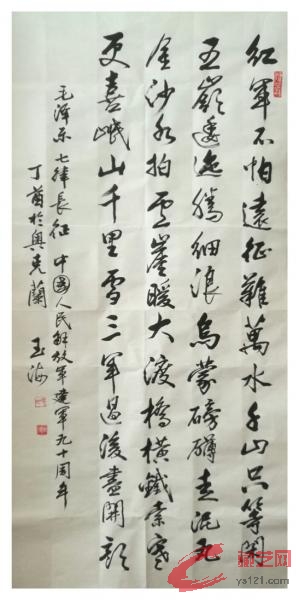 紅軍不怕遠征難萬水千山只等閑
五嶺逶迤騰細浪烏蒙磅礴走泥丸
金沙水拍雲崖暖大渡橋橫鐵索寒
更喜岷山千里雪三軍過後盡開顏
毛澤东七律長征 中國人民解放军建軍九十周年
丁酉於奥克蘭 玉海
ys121.com